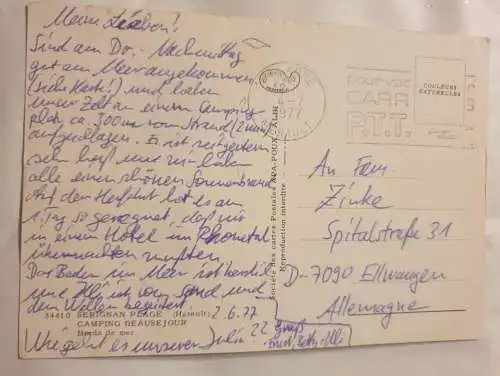 Meine Lieben!
Sind am Do.-Nachmittag
gut am Meer angekommen
(siehe Karte!) und haben
unser Zelt an einem Camping
platz ca. 300m vom Strand (2 min)
aufgeschlagen. Es ist seit gestern
sehr heiß und wir haben
alle einen schönen Sonnenbrand
Auf der Herfahrt hat es am
1. Tag so geregnet, daß wir
in einem Hotel im Rhonetal
übernachten mußten.
Das Baden im Meer ist herrlich
und Alf ist vom Sand und
den Wellen begeistert.
34410 SERIGNAN PLAGE (Hérault) 2.6.77
CAMPING BEAUSEJOUR
Bords de mer
Wie geht es unserer Julia?
Société des cartes Postales APA-POUX - ALBI
Reproduction interdite
1977
HERAULT
POUR VOS
CARR
P.T.T.
COULEURS
NATURELLES
An Fam.
Zinke
Spitalstraße 31
D-7090 Ellwangen
Allemagne